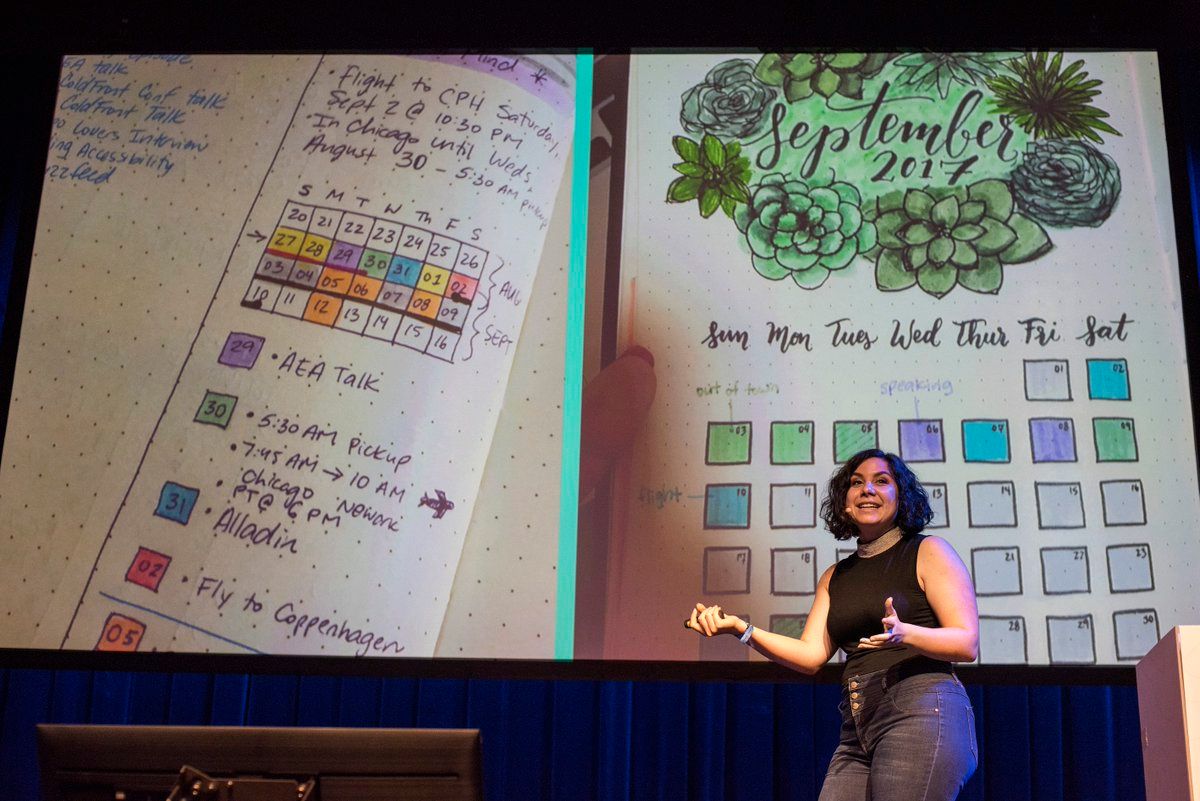 EA talk
ColdFront Conf talk
ColdFront Talk
Lovers Interview
ing Accessibility
zzfeed
Mind *
• Flight to CPH Saturday,
Sept 2 @ 10:30 PM
• In Chicago until Weds,
August 30 - 5:30 AM pickup
S M T W Th F S
20 21 22 23 24 25 26
→ 27 28 29 30 31 01 02
AUG
03 04 05 06 07 08 09
10 11 12 13 14 15 16
SEPT
29 • AEA Talk
30 • 5:30 AM Pickup
• 7:45 AM → 10 AM
Chicago Newark
• PT @ 6 PM
31 • Alladin
02 • Fly to Coppenhagen
05
September
2017
Sun Mon Tues Wed Thur Fri Sat
out of town
speaking
01 02
03 04 05 06 07 08 09
flight
10 11 13 14 15 16
17 18 21 22 23
28 29 30